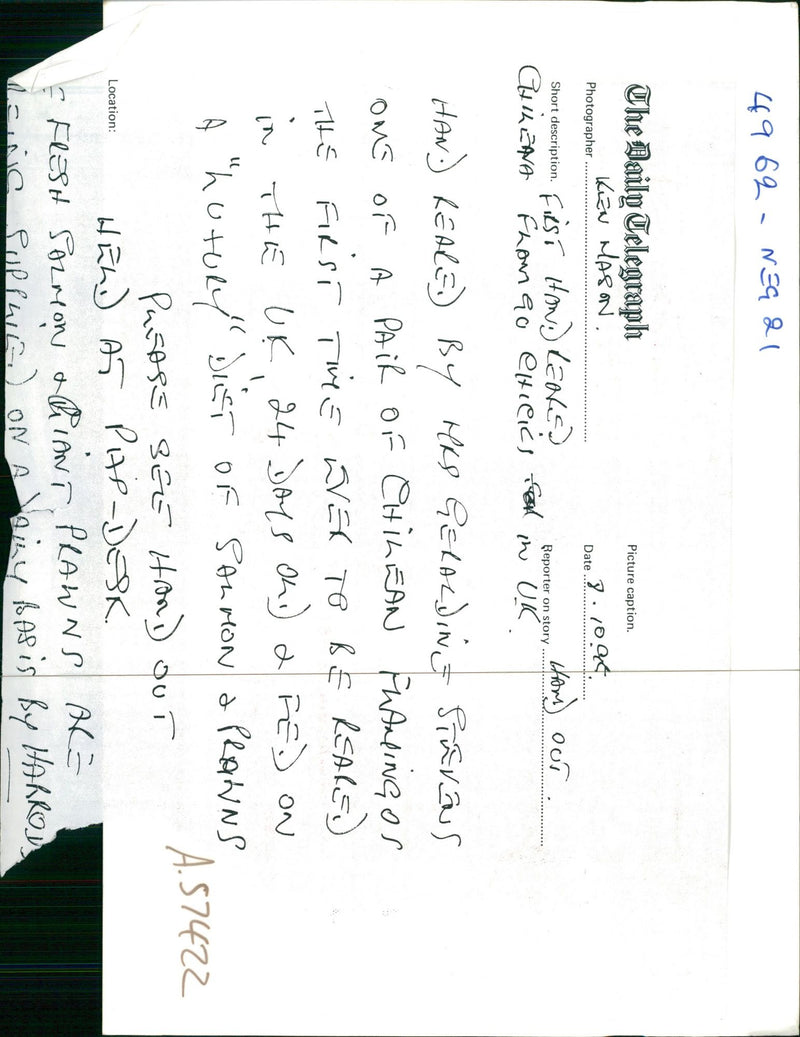 4962 - NEG 21
The Daily Telegraph
Picture caption.
Photographer KEN MASON.
Date 8.10.
Short description. FIRST HAND REARED
Reporter on story HAND OUT.
CHILEAN FLAMINGO CHICKS IN UK.
HAND REARED BY MRS GERALDINE STEVENS
ONE OF A PAIR OF CHILEAN FLAMINGOS
THE FIRST TIME EVER TO BE REARED
IN THE UK, 24 DAYS OLD & FED ON
A "LUXURY" DIET OF SALMON & PRAWNS
PLEASE SEE HAND OUT
HELD AT PIP-DESK.
Location:
FRESH SALMON & GIANT PRAWNS ARE
BEING SUPPLIED ON A DAILY BASIS BY HARRODS
A.57422